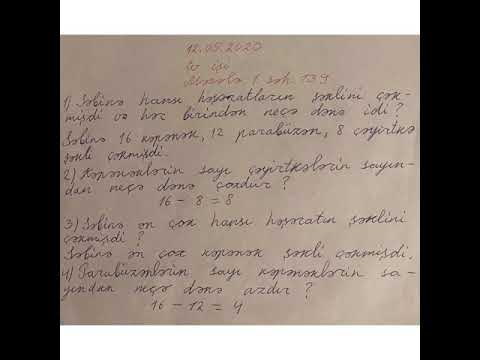 12.05.2020
Ev işi
Məsələ 1. səh. 139
1) Səbinə hansı həşəratların şəklini çək-
mişdi və hər birindən neçə dənə idi?
Səbinə 16 kəpənək, 12 parabüzən, 8 çəyirtkə
şəkli çəkmişdi.
2) Kəpənəklərin sayı çəyirtkələrin sayın-
dan neçə dənə çoxdur?
16 - 8 = 8
3) Səbinə ən çox hansı həşəratın şəklini
çəkmişdi?
Səbinə ən çox kəpənək şəkli çəkmişdi.
4) Parabüzənlərin sayı kəpənəklərin sa-
yından neçə dənə azdır?
16 - 12 = 4